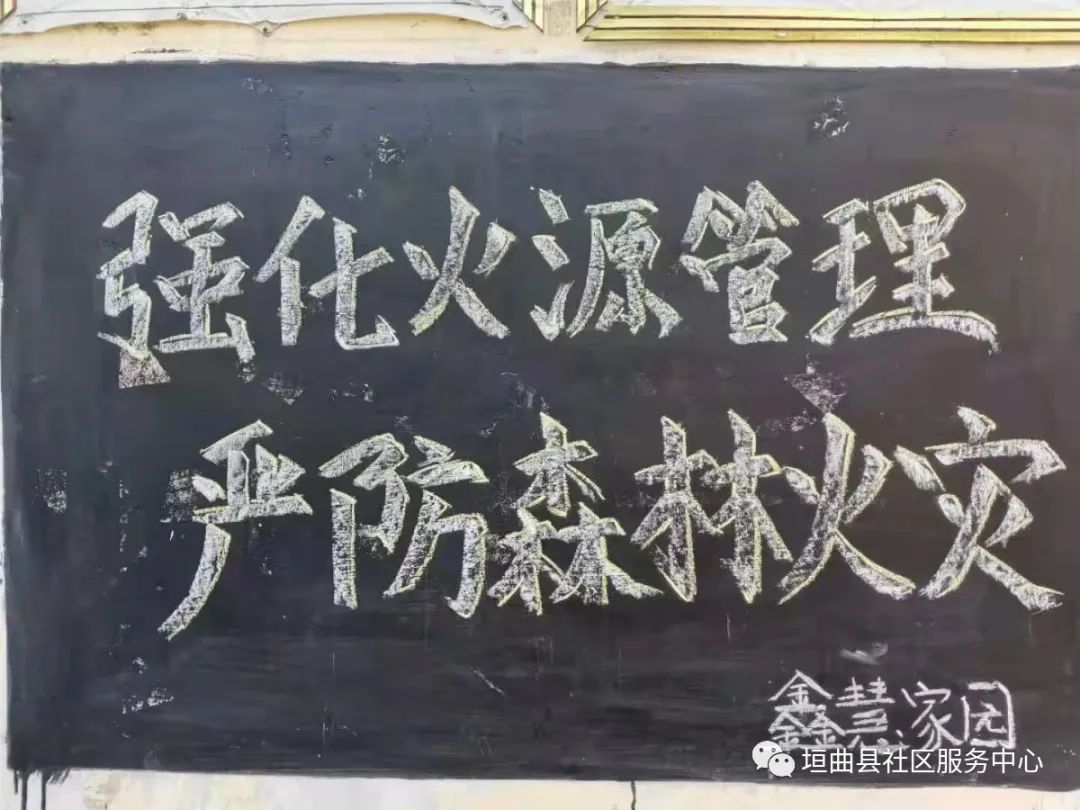 强化火源管理
严防森林火灾
鑫慧家园
垣曲县社区服务中心